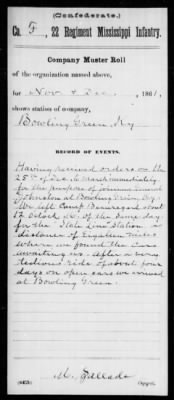 (Confederate.)
Co. F, 22 Regiment Mississippi Infantry.
Company Muster Roll
of the organization named above,
for Nov & Dec, 1861,
shows station of company,
Bowling Green, Ky
RECORD OF EVENTS.
Having received orders on the
25th of Dec. to March immediately
for the purpose of joining General
Johnston at Bowling Green, Ky.
We left Camp Beauregard about
12 Oclock M. of the same day
for the State Line Station, a
distance of Eighteen miles
where we found the Cars
awaiting us. After a very
tedious ride of about four
days on open cars we arrived
at Bowling Green.
M.
Copyist.